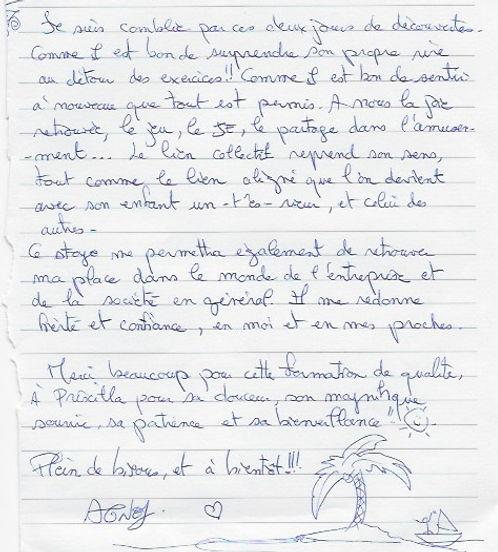 Je suis comblée par ces deux jours de découvertes.
Comme il est bon de surprendre son propre rire
au détour des exercices!! Comme il est bon de sentir
à nouveau que tout est permis. A nous la joie
retrouvée, le jeu, le JE, le partage dans l'amuse-
-ment... Le lien collectif reprend son sens,
tout comme le lien aligné que l'on devient
avec son enfant un-té-rieur, et celui des
autres-
Ce stage me permettra également de retrouver
ma place dans le monde de l'entreprise et
de la société en général. Il me redonne
fierté et confiance, en moi et en mes proches.
Merci beaucoup pour cette formation de qualité,
À Priscilla pour sa douceur, son magnifique
sourire, sa patience et sa bienveillance!!
Plein de bisous, et à bientôt!!!
AGNès.